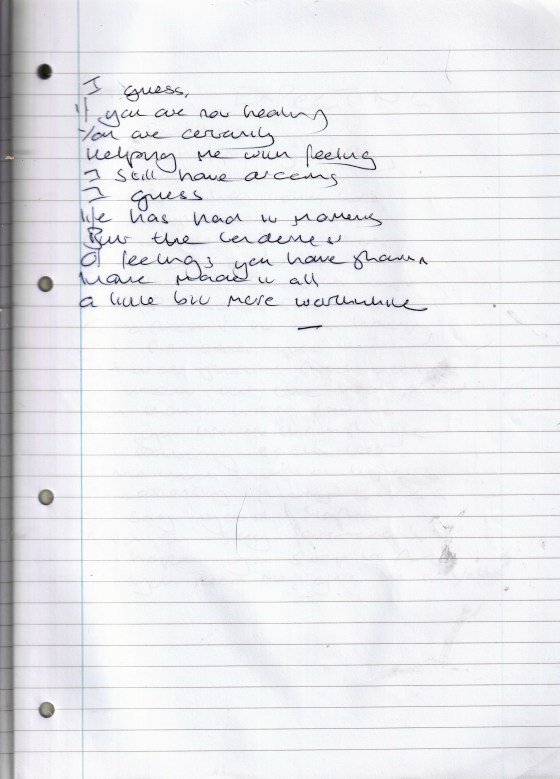 I guess,
If you are not healing
You are certainly
Helping me with feeling
I still have
I guess
life has had its moments
But the tenderness
Of feelings you have shown
have made it all
a little bit more worthwhile